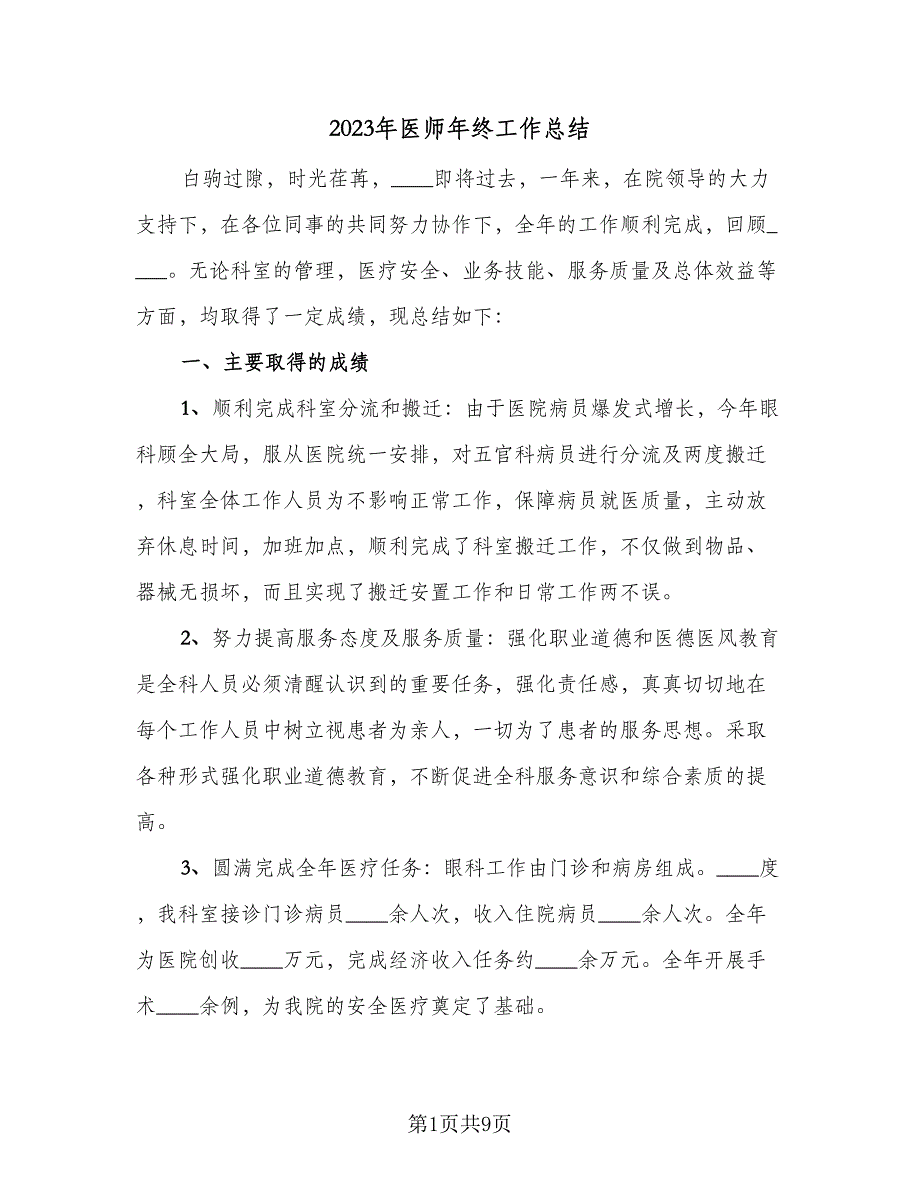 2023年医师年终工作总结
白驹过隙，时光荏苒，____即将过去，一年来，在院领导的大力
支持下，在各位同事的共同努力协作下，全年的工作顺利完成，回顾_
___。无论科室的管理，医疗安全、业务技能、服务质量及总体效益等
方面，均取得了一定成绩，现总结如下：
一、主要取得的成绩
1、顺利完成科室分流和搬迁：由于医院病员爆发式增长，今年眼
科顾全大局，服从医院统一安排，对五官科病员进行分流及两度搬迁
，科室全体工作人员为不影响正常工作，保障病员就医质量，主动放
弃休息时间，加班加点，顺利完成了科室搬迁工作，不仅做到物品、
器械无损坏，而且实现了搬迁安置工作和日常工作两不误。
2、努力提高服务态度及服务质量：强化职业道德和医德医风教育
是全科人员必须清醒认识到的重要任务，强化责任感，真真切切地在
每个工作人员中树立视患者为亲人，一切为了患者的服务思想。采取
各种形式强化职业道德教育，不断促进全科服务意识和综合素质的提
高。
3、圆满完成全年医疗任务：眼科工作由门诊和病房组成。____度
，我科室接诊门诊病员____余人次，收入住院病员____余人次。全年
为医院创收____万元，完成经济收入任务约____余万元。全年开展手
术____余例，为我院的安全医疗奠定了基础。
第1页共9页